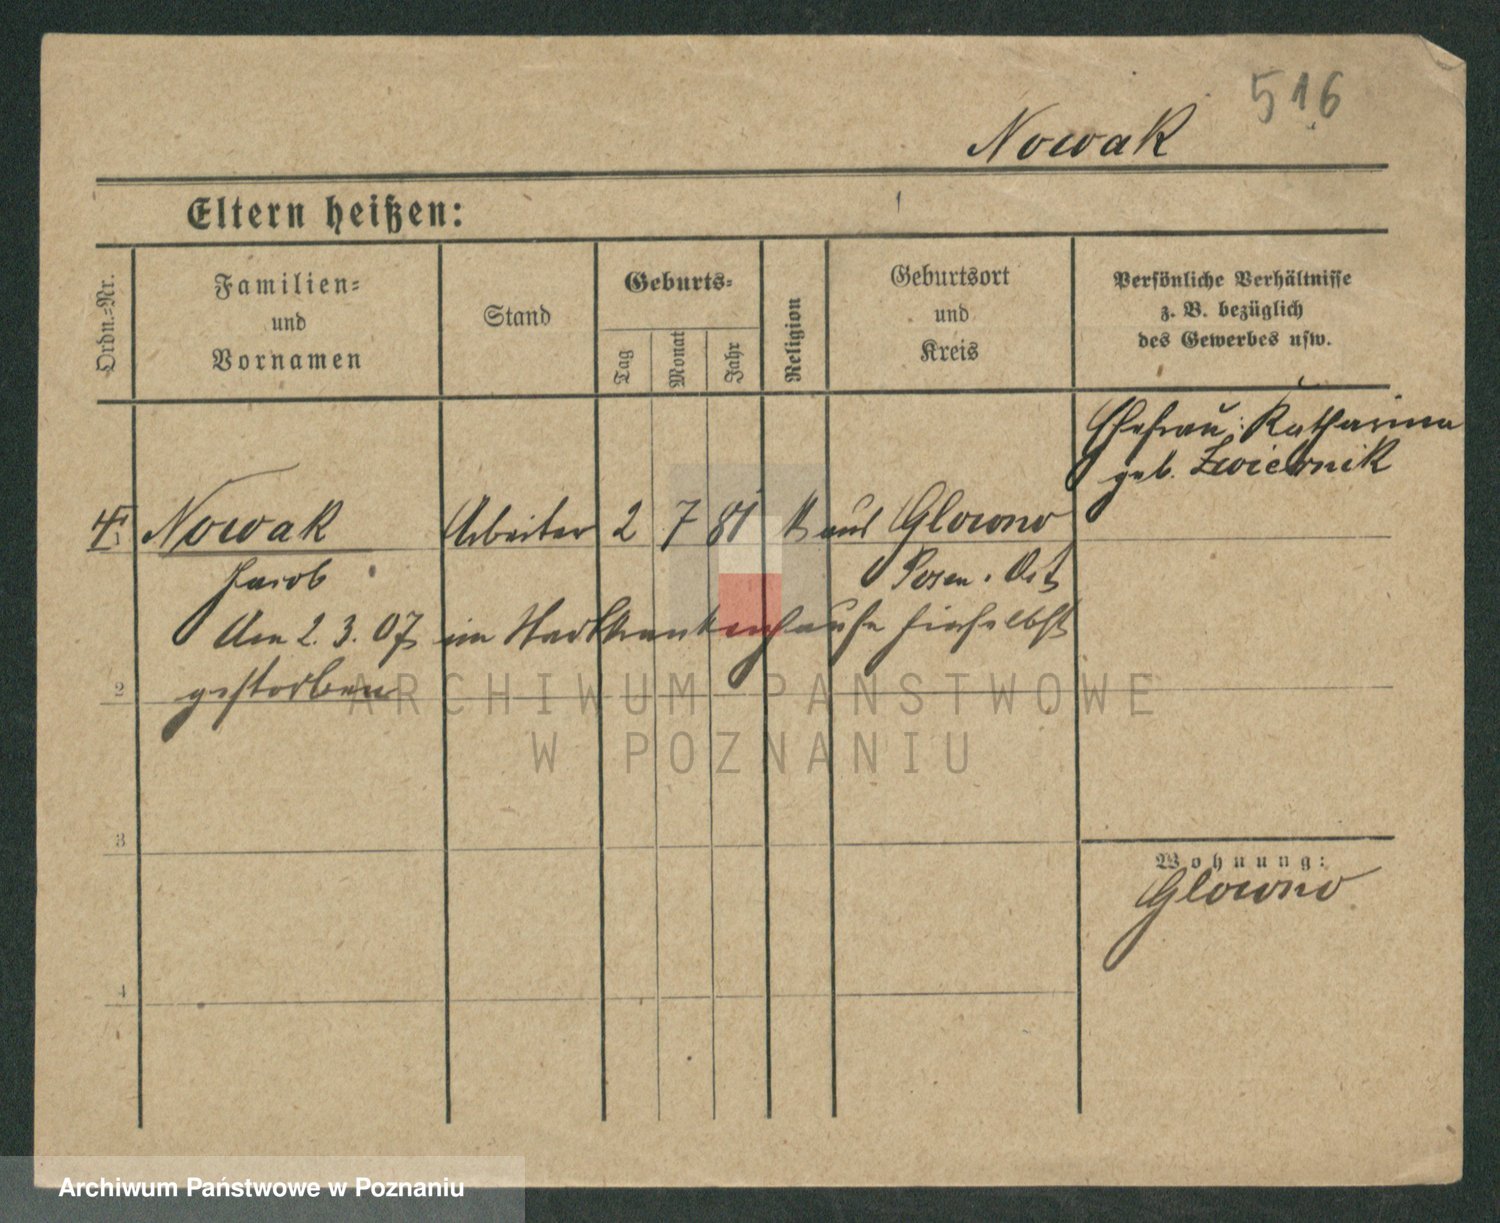 516
Nowak
Eltern heißen:
Ordn.=Nr.
Familien=
und
Vornamen
Stand
Geburts=
Tag
Monat
Jahr
Religion
Geburtsort
und
Kreis
Persönliche Verhältnisse
z. B. bezüglich
des Gewerbes usw.
Ehefrau: Katharina
geb. Zwiernik
Nowak Arbeiter 2 7 81 k aus Glowno
Jacob Posen. Ost
Am 2. 3. 07 im Stadtkrankenhause hierselbst
2 gestorben
ARCHIWUM PAŃSTWOWE
W POZNANIU
3
Wohnung:
Glowno
4
Archiwum Państwowe w Poznaniu